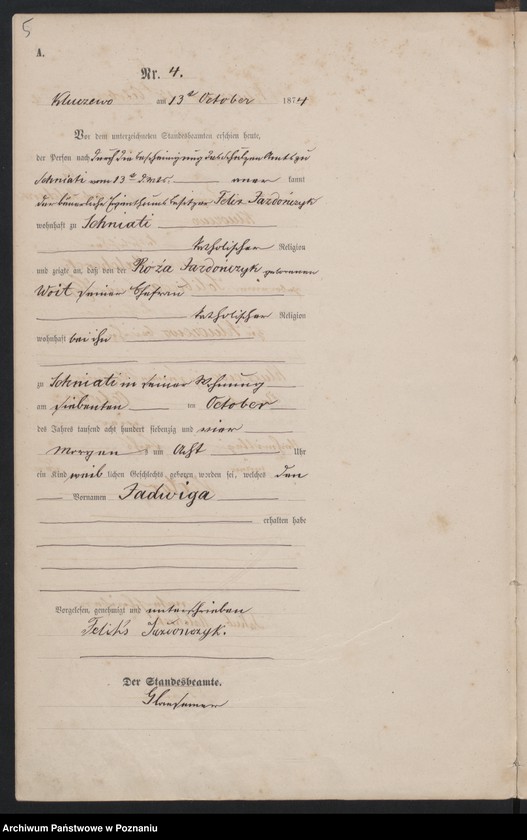 5
A.
Nr. 4.
Kluczewo am 13ten October 1874
Vor dem unterzeichneten Standesbeamten erschien heute,
der Person nach durch die Bescheinigung des Schulzen Amts zu
Sokniati vom 13ten d. Mts. aner kannt
der bäuerliche Eigenthums besitzer Felix Jazdończyk
wohnhaft zu Sokniati
katholischer Religion
und zeigte an, daß von der Roża Jazdończyk geborenen
Woit seiner Ehefrau
katholischer Religion
wohnhaft bei ihm
zu Sokniati in seiner Wohnung
am siebenten ten October
des Jahres tausend acht hundert siebenzig und vier
Morgen s um Acht Uhr
ein Kind weib lichen Geschlechts geboren worden sei, welches den
Vornamen Jadwiga
erhalten habe
Vorgelesen, genehmigt und unterschrieben
Feliks Jazdonczyk.
Der Standesbeamte.
Archiwum Państwowe w Poznaniu